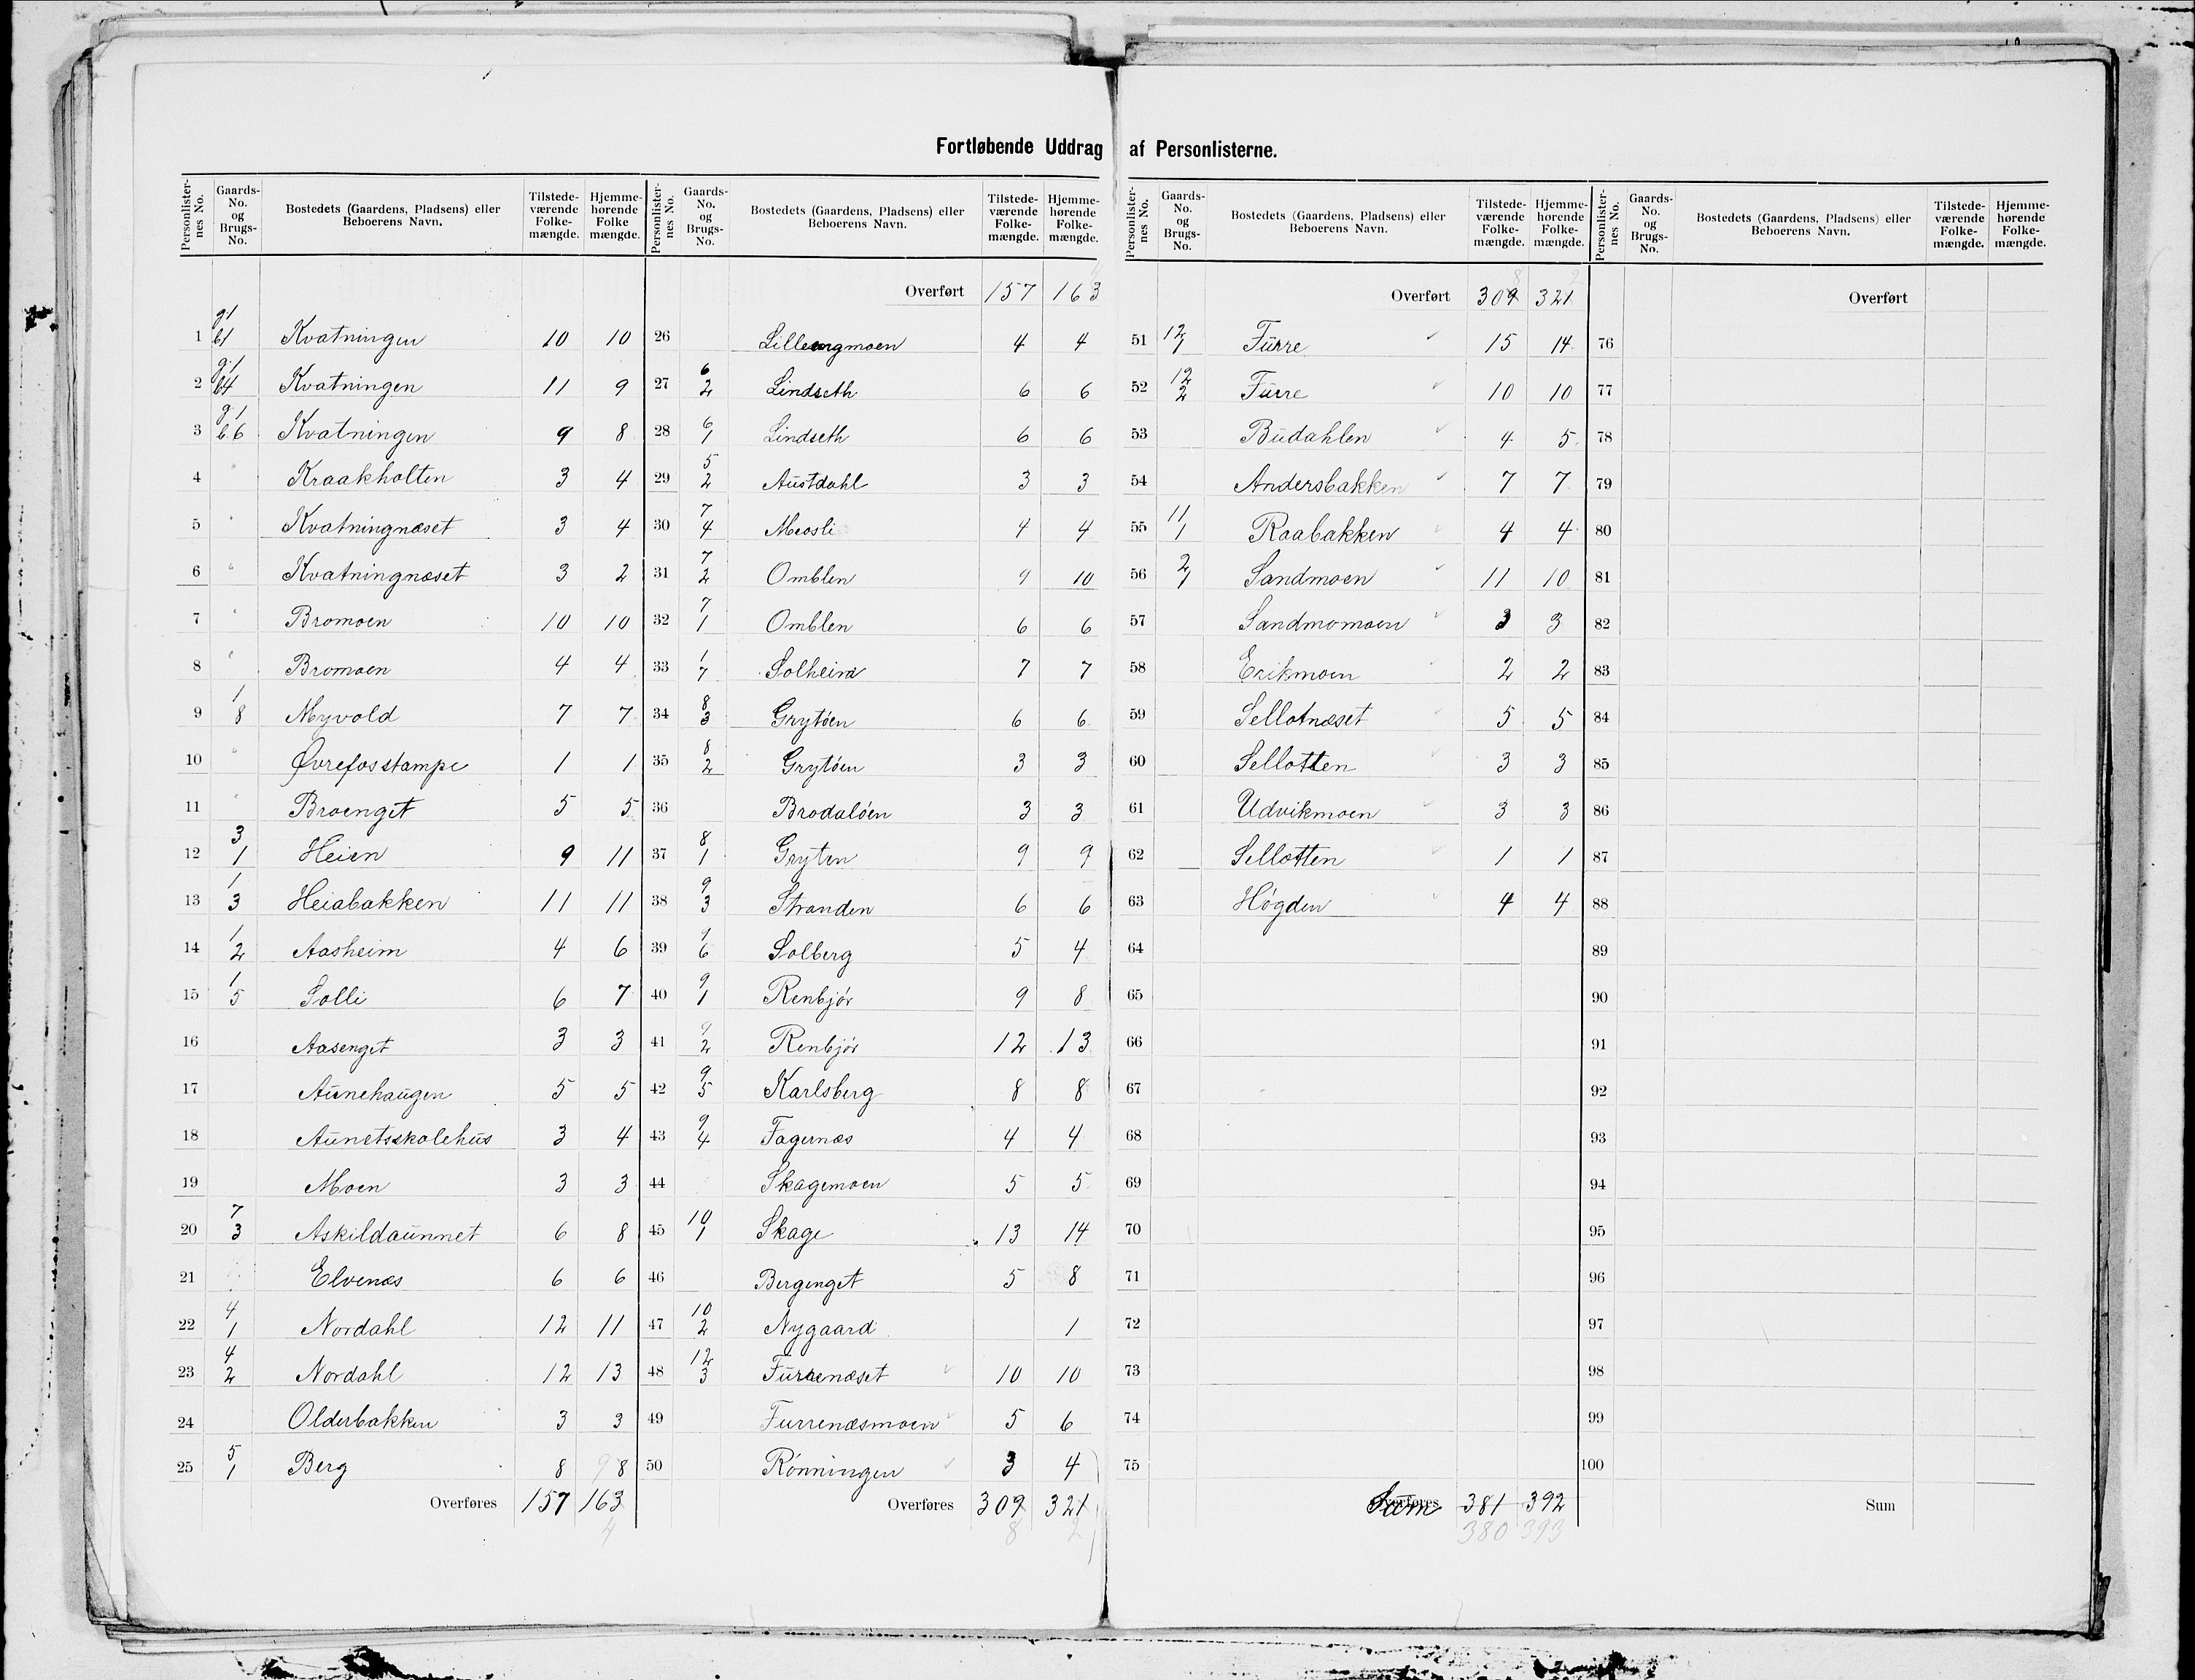 Fortløbende Uddrag af Personlisterne.
Personlisternes No. Gaards-No. og Brugs-No. Bostedets (Gaardens, Pladsens) eller Beboerens Navn. Tilstedeværende Folkemængde. Hjemmehørende Folke mængde.
1 g1 b1 Kvatningen 10 10
2 g1 b4 Kvatningen 11 9
3 g1 b.6 Kvatningen 9 8
4 " Kraakholten 3 4
5 " Kvatningnæset 3 4
6 " Kvatningnæset 3 2
7 " Bromoen 10 10
8 " Bromoen 4 4
9 1 8 Myvold 7 7
10 " Øvrefosstampe 1 1
11 " Broenget 5 5
12 3 1 Heien 9 11
13 1 3 Heiabakken 11 11
14 1 2 Aasheim 4 6
15 1 5 Solli 6 7
16 Aasenget 3 3
17 Aunehaugen 5 5
18 Aunetsskolehus 3 4
19 Moen 3 3
20 7 3 Askildaunnet 6 8
21 Elvenæs 6 6
22 4 1 Nordahl 12 11
23 4 2 Nordahl 12 13
24 Olderbakken 3 3
25 5 1 Berg 8 9 8
Overføres 157 163
4
Personlisternes No. Gaards-No. og Brugs-No. Bostedets (Gaardens, Pladsens) eller Beboerens Navn. Tilstedeværende Folkemængde. Hjemmehørende Folkemængde.
Overført 157 163
26 Lilleengmoen 4 4
27 6 2 Lindseth 6 6
28 6 1 Lindseth 6 6
29 5 2 Austdahl 3 3
30 7 4 Meosli 4 4
31 7 2 Omblen 9 10
32 7 1 Omblen 6 6
33 1 7 Solheim 7 7
34 8 3 Grytöen 6 6
35 8 2 Grytöen 3 3
36 Brodalöen 3 3
37 8 1 Gryten 9 9
38 9 3 Stranden 6 6
39 9 6 Solberg 5 4
40 9 1 Renbjör 9 8
41 9 2 Renbjör 12 13
42 9 5 Karlsberg 8 8
43 9 4 Fagernæs 4 4
44 Skagemoen 5 5
45 10 1 Skage 13 14
46 Bergenget 5 8
47 10 2 Nygaard 1
48 12 3 Furrenæset 10 10
49 Furrenæsmoen 5 6
50 Rönningen 3 4
Overføres 309 321
8 2
Personlisternes No. Gaards-No. og Brugs-No. Bostedets (Gaardens, Pladsens) eller Beboerens Navn. Tilstedeværende Folkemængde. Hjemmehørende Folkemængde.
8 2
Overført 309 321
51 12 1 Furre 15 14
52 12 2 Furre 10 10
53 Budahlen 4 5
54 Andersbakken 7 7
55 11 1 Raabakken 4 4
56 2 1 Sandmoen 11 10
57 Sandmomoen 3 3
58 Erikmoen 2 2
59 Sellotnæset 5 5
60 Sellotten 3 3
61 Udvikmoen 3 3
62 Sellotten 1 1
63 Högden 4 4
64
65
66
67
68
69
70
71
72
73
74
75
Overføres Sum 381 392
380 393
Personlisternes No. Gaards-No. og Brugs-No. Bostedets (Gaardens, Pladsens) eller Beboerens Navn. Tilstedeværende Folkemængde. Hjemmehørende Folkemængde.
Overført
76
77
78
79
80
81
82
83
84
85
86
87
88
89
90
91
92
93
94
95
96
97
98
99
100
Sum